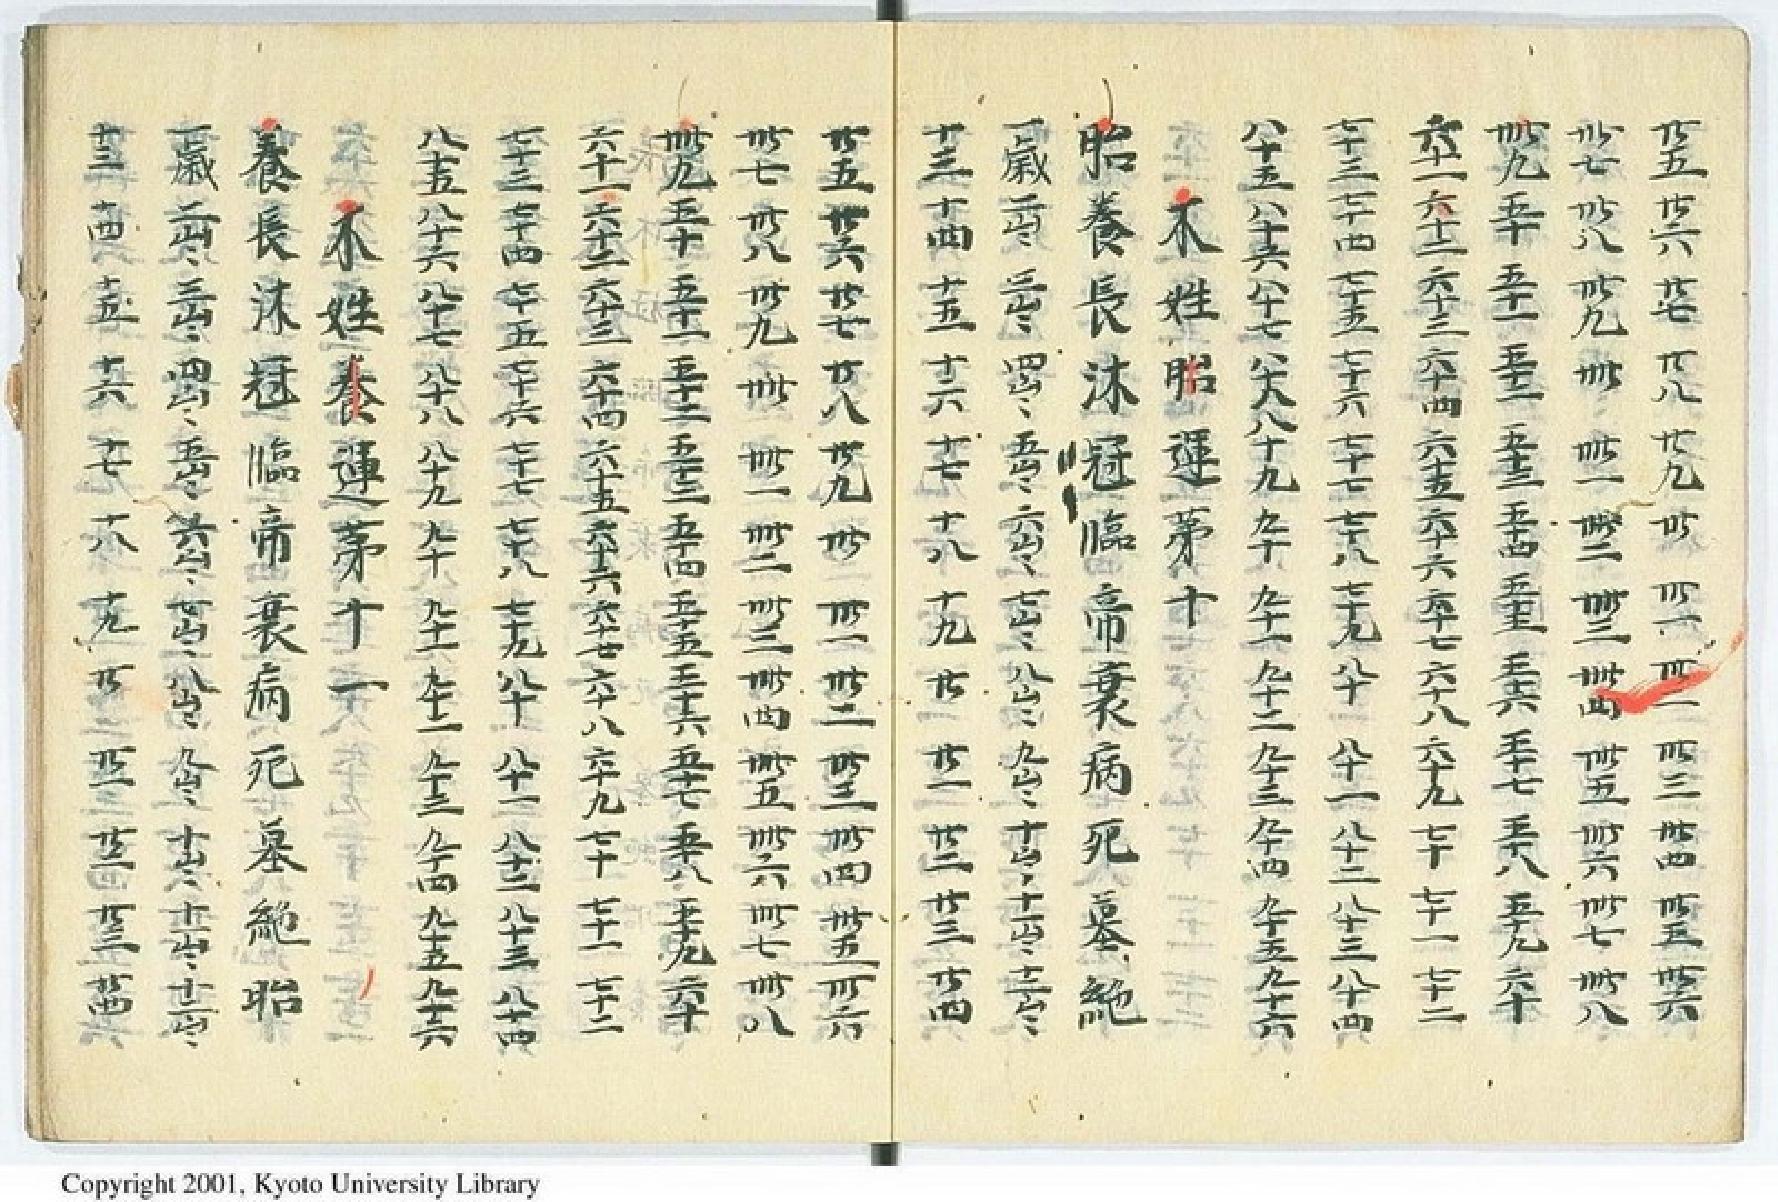 廿五廿六廿七廿八廿九卅卅一卅二卅三卅四卅五卅六
卅七卅八卅九卌卌一卌二卌三卌四卌五卌六卌七卌八
卌九五十五十一五十二五十三五十四五十五五十六五十七五十八五十九六十
六十一六十二六十三六十四六十五六十六六十七六十八六十九七十七十一七十二
七十三七十四七十五七十六七十七七十八七十九八十八十一八十二八十三八十四
八十五八十六八十七八十八八十九九十九十一九十二九十三九十四九十五九十六
木姓胎運苐十
胎養長沐冠臨帝衰病死墓絶
一歳二山々三山々四山々五山々六山々七山々八山々九山々十山々十一山々十二山々
十三十四十五十六十七十八十九廿廿一廿二廿三廿四
廿五廿六廿七廿八廿九卅卅一卅二卅三卅四卅五卅六
卅七卅八卅九卌卌一卌二卌三卌四卌五卌六卌七卌八
卌九五十五十一五十二五十三五十四五十五五十六五十七五十八五十九六十
六十一六十二六十三六十四六十五六十六六十七六十八六十九七十七十一七十二
七十三七十四七十五七十六七十七七十八七十九八十八十一八十二八十三八十四
八十五八十六八十七八十八八十九九十九十一九十二九十三九十四九十五九十六
木姓養運苐十一
養長沐冠臨帝衰病死墓絶胎
一歳二山々三山々四山々五山々六山々七山々八山々九山々十山々十一山々十二山々
十三十四十五十六十七十八十九廿廿一廿二廿三廿四
Copyright 2001, Kyoto University Library